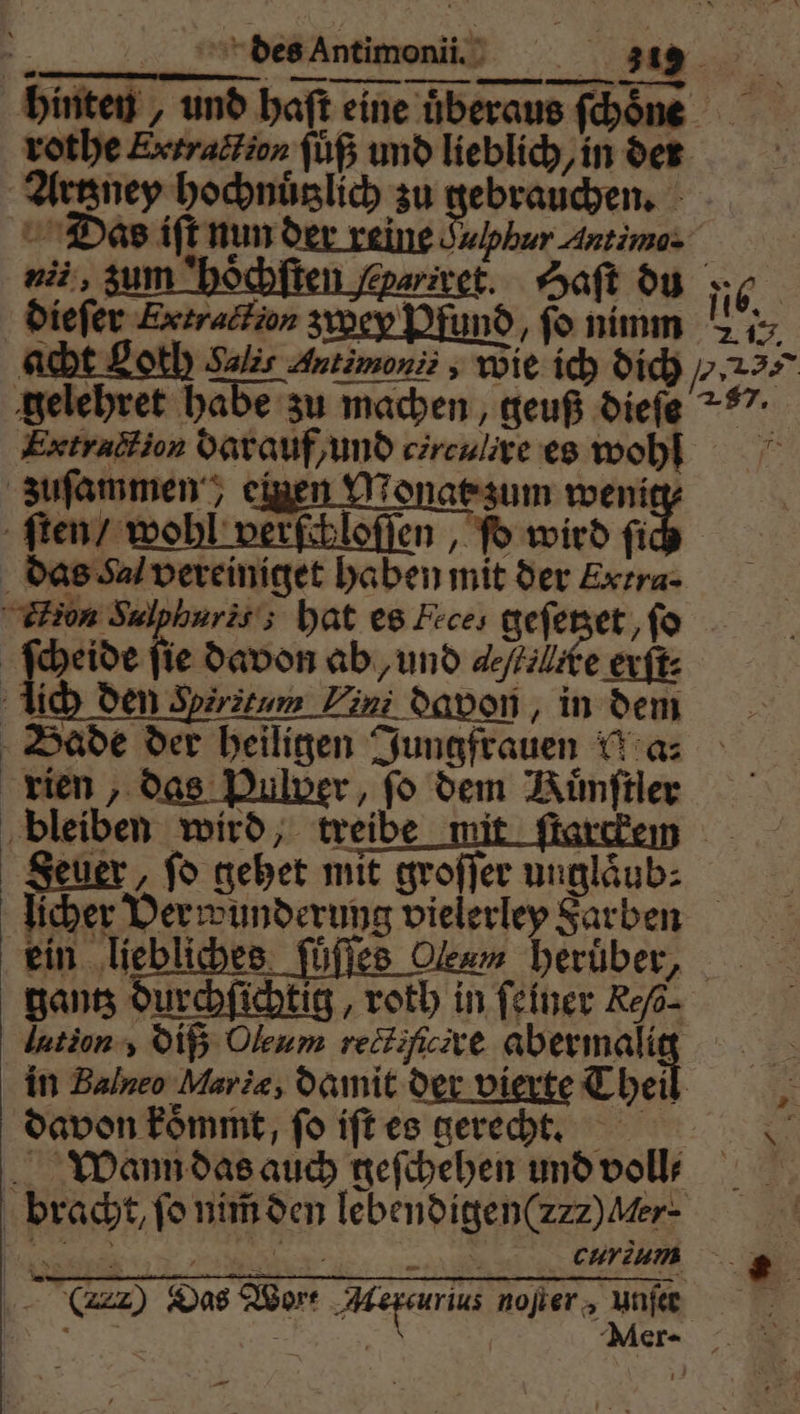 des Antimonii. 319
hinten, und haſt eine uͤberaus ſchoͤne
rothe Extraction ſuͤß und lieblich, in der
Artzney hochnuͤtzlich zu gebrauchen.
Das iſt nun der reine Sulphur Antimo-
nii, zum hoͤchſten ſepariret. Haſt du
dieſer Extraction zwey Pfund, ſo nimm
acht Loth Salis Antimonii, wie ich dich
gelehret habe zu machen, geuß dieſe
Extraction darauf, und circulire es wohl
zuſammen, einen Monat zum wenig-
ſten / wohl verſchloſſen, ſo wird ſich
das Sal vereiniget haben mit der Extra-
ction Sulphuris; hat es Feces geſetzet, ſo
ſcheide ſie davon ab, und deſtillire erſt-
lich den Spiritum Vini davon, in dem
Bade der heiligen Jungfrauen Ma-
rien, das Pulver, ſo dem Kuͤnſtler
bleiben wird, treibe mit ſtarckem
Feuer, ſo gehet mit groſſer unglaͤub-
licher Verwunderung vielerley Farben
ein liebliches ſuͤſſes Oleum heruͤber,
gantz durchſichtig, roth in ſeiner Reſo-
lution, diß Oleum rectificire abermalig
in Balneo Mariæ, damit der vierte Theil
davon koͤmmt, ſo iſt es gerecht.
Wann das auch geſchehen und voll-
bracht, ſo nim̃ den lebendigen (zzz) Mer-
curium
(zzz) Das Wort Mercurius noſter, unſer
Mer-
116.
235
287.